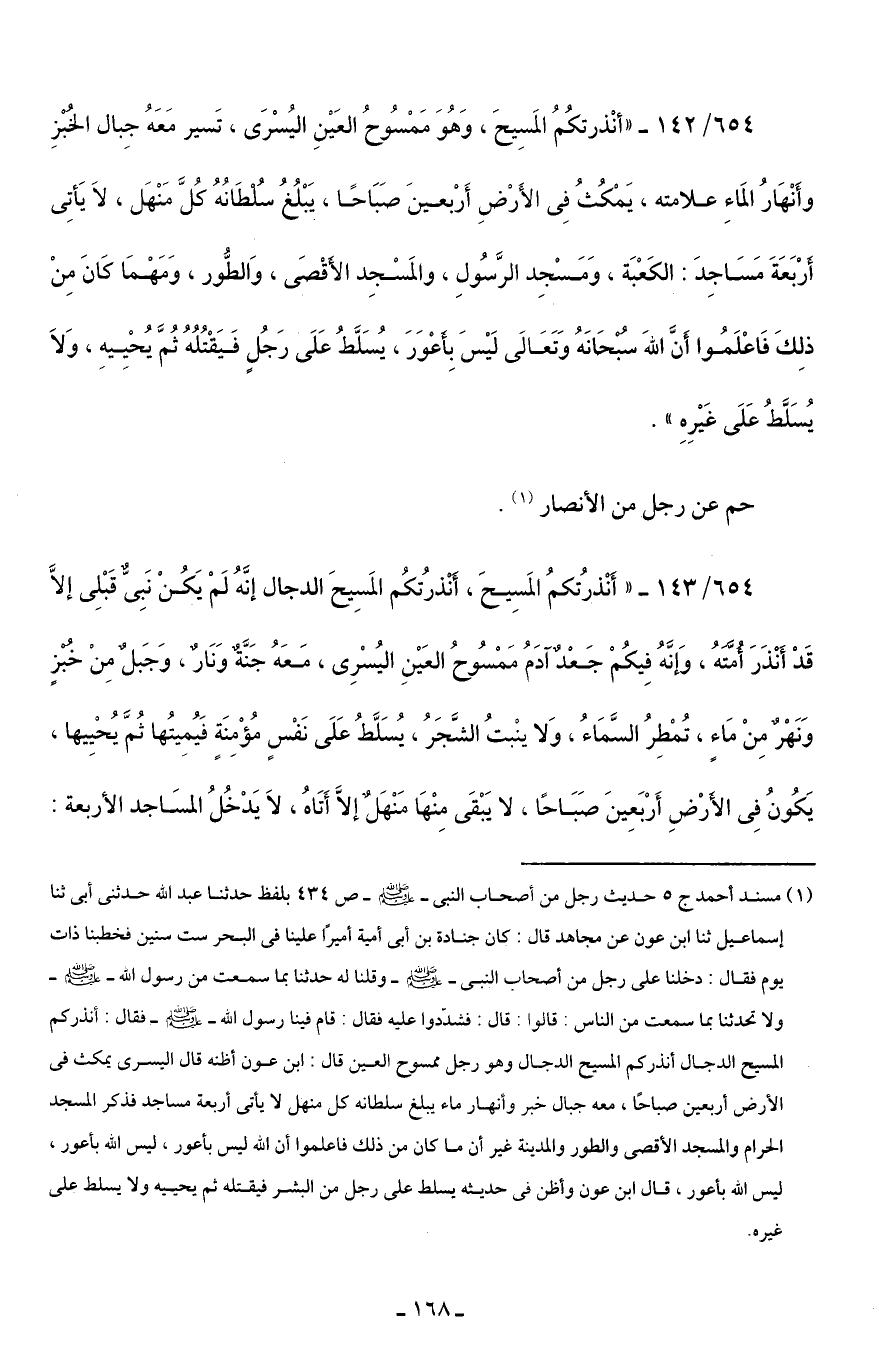 ١٤٢/٦٥٤ ـ «أنْذرتكُمُ المَسيحَ ، وَهُوَ مَمْسُوحُ العَيْنِ اليُسْرَى ، تَسير مَعَهُ جِبال الخُبْزِ
وأَنْهَارُ المَاءِ علامته ، يَمْكُثُ فِى الأَرْضِ أَرْبعينَ صَبَاحًا ، يَبْلُغُ سُلْطَانُهُ كُلَّ مَنْهَل ، لاَ يَأتى
أَرْبَعَةَ مَسَاجِدَ : الكَعْبَة ، وَمَسْجِد الرَّسُولِ ، والمَسْجِد الأَقْصَى ، وَالطُّور ، وَمَهْمَا كَانَ مِنْ
ذلِكَ فَاعْلَمُوا أَنَّ اللهَ سُبْحَانَهُ وَتَعَالَى لَيْسَ بِأَعْوَرَ ، يُسَلَّطُ عَلَى رَجُلٍ فَيَقْتُلُهُ ثُمَّ يُحْيِيهِ ، وَلاَ
يُسَلَّطُ عَلَى غَيْرِهِ » .
حم عن رجل من الأنصار (١) .
١٤٣/٦٥٤ ـ « أَنْذرتُكمُ المَسِيحَ ، أَنْذرتُكُم المَسِيحَ الدجال إنَّهُ لَمْ يَكُنْ نَبىٌّ قَبْلِى إلاَّ
قَدْ أَنْذَرَ أُمَّتَهُ ، وَإنَّهُ فِيكُمْ جَعْدٌ آدَمُ مَمْسُوحُ العَيْنِ اليُسْرِى ، مَعَهُ جَنَّةٌ وَنَارٌ ، وَجَبلٌ مِنْ خُبْزٍ
وَنَهْرٌ مِنْ مَاءٍ ، تُمْطِرُ السَّمَاءُ ، وَلا ينْبتُ الشَّجَرُ ، يُسَلَّطُ عَلَى نَفْسٍ مُؤْمِنَةٍ فَيُمِيتُها ثُمَّ يُحْيِيها ،
يَكُونُ فِى الأَرْضِ أَرْبَعِينَ صَبَاحًا ، لا يَبْقَى مِنْهَا مَنْهَلٌ إلاَّ أَتَاهُ ، لاَ يَدْخُلُ المسَاجد الأربعة :
(١) مسند أحمد ج ٥ حديث رجل من أصحاب النبى ـ ﷺ ـ ص ٤٣٤ بلفظ حدثنا عبد الله حدثنى أبى ثنا
إسماعيل ثنا ابن عون عن مجاهد قال : كان جنادة بن أبى أمية أميرًا علينا فى البحر ست سنين فخطبنا ذات
يوم فقال : دخلنا على رجل من أصحاب النبى ـ ﷺ ـ وقلنا له حدثنا بما سمعت من رسول الله ـ ﷺ ـ
ولا تحدثنا بما سمعت من الناس : قالوا : قال : فشدّدوا عليه فقال : قام فينا رسول الله ـ ﷺ ـ فقال : أنذركم
المسيح الدجال أنذركم المسيح الدجال وهو رجل ممسوح العين قال : ابن عون أظنه قال اليسرى يمكث فى
الأرض أربعين صباحًا ، معه جبال خبر وأنهار ماء يبلغ سلطانه كل منهل لا يأتى أربعة مساجد فذكر المسجد
الحرام والمسجد الأقصى والطور والمدينة غير أن ما كان من ذلك فاعلموا أن الله ليس بأعور ، ليس الله بأعور ،
ليس الله بأعور ، قال ابن عون وأظن فى حديثه يسلط على رجل من البشر فيقتله ثم يحييه ولا يسلط على
غيره.
ـ ١٦٨ ـ